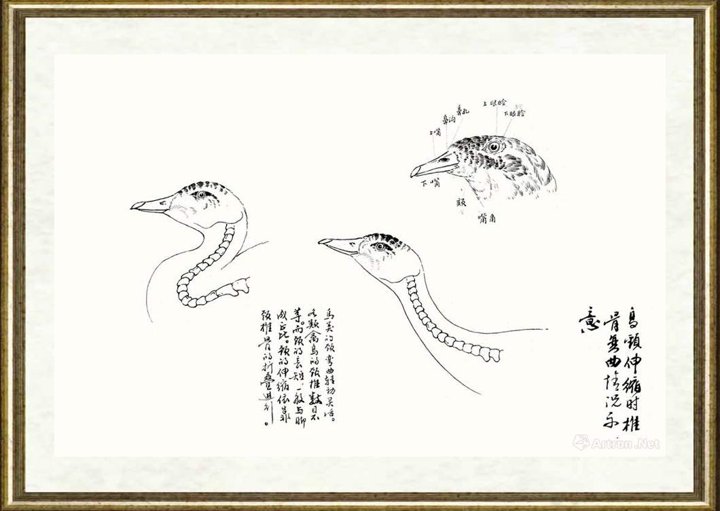 上眼睑
下眼睑
鼻孔
鼻沟
上嘴
下嘴
颏
嘴角
鸟类的颈弯曲转动灵活。
类禽鸟的颈椎数目不
等。而颈的长短,一般与脚
成正比。颈的伸缩依靠
颈椎骨的折叠进行。
鸟颈伸缩时椎
骨弯曲情况示
意
Artron.Net